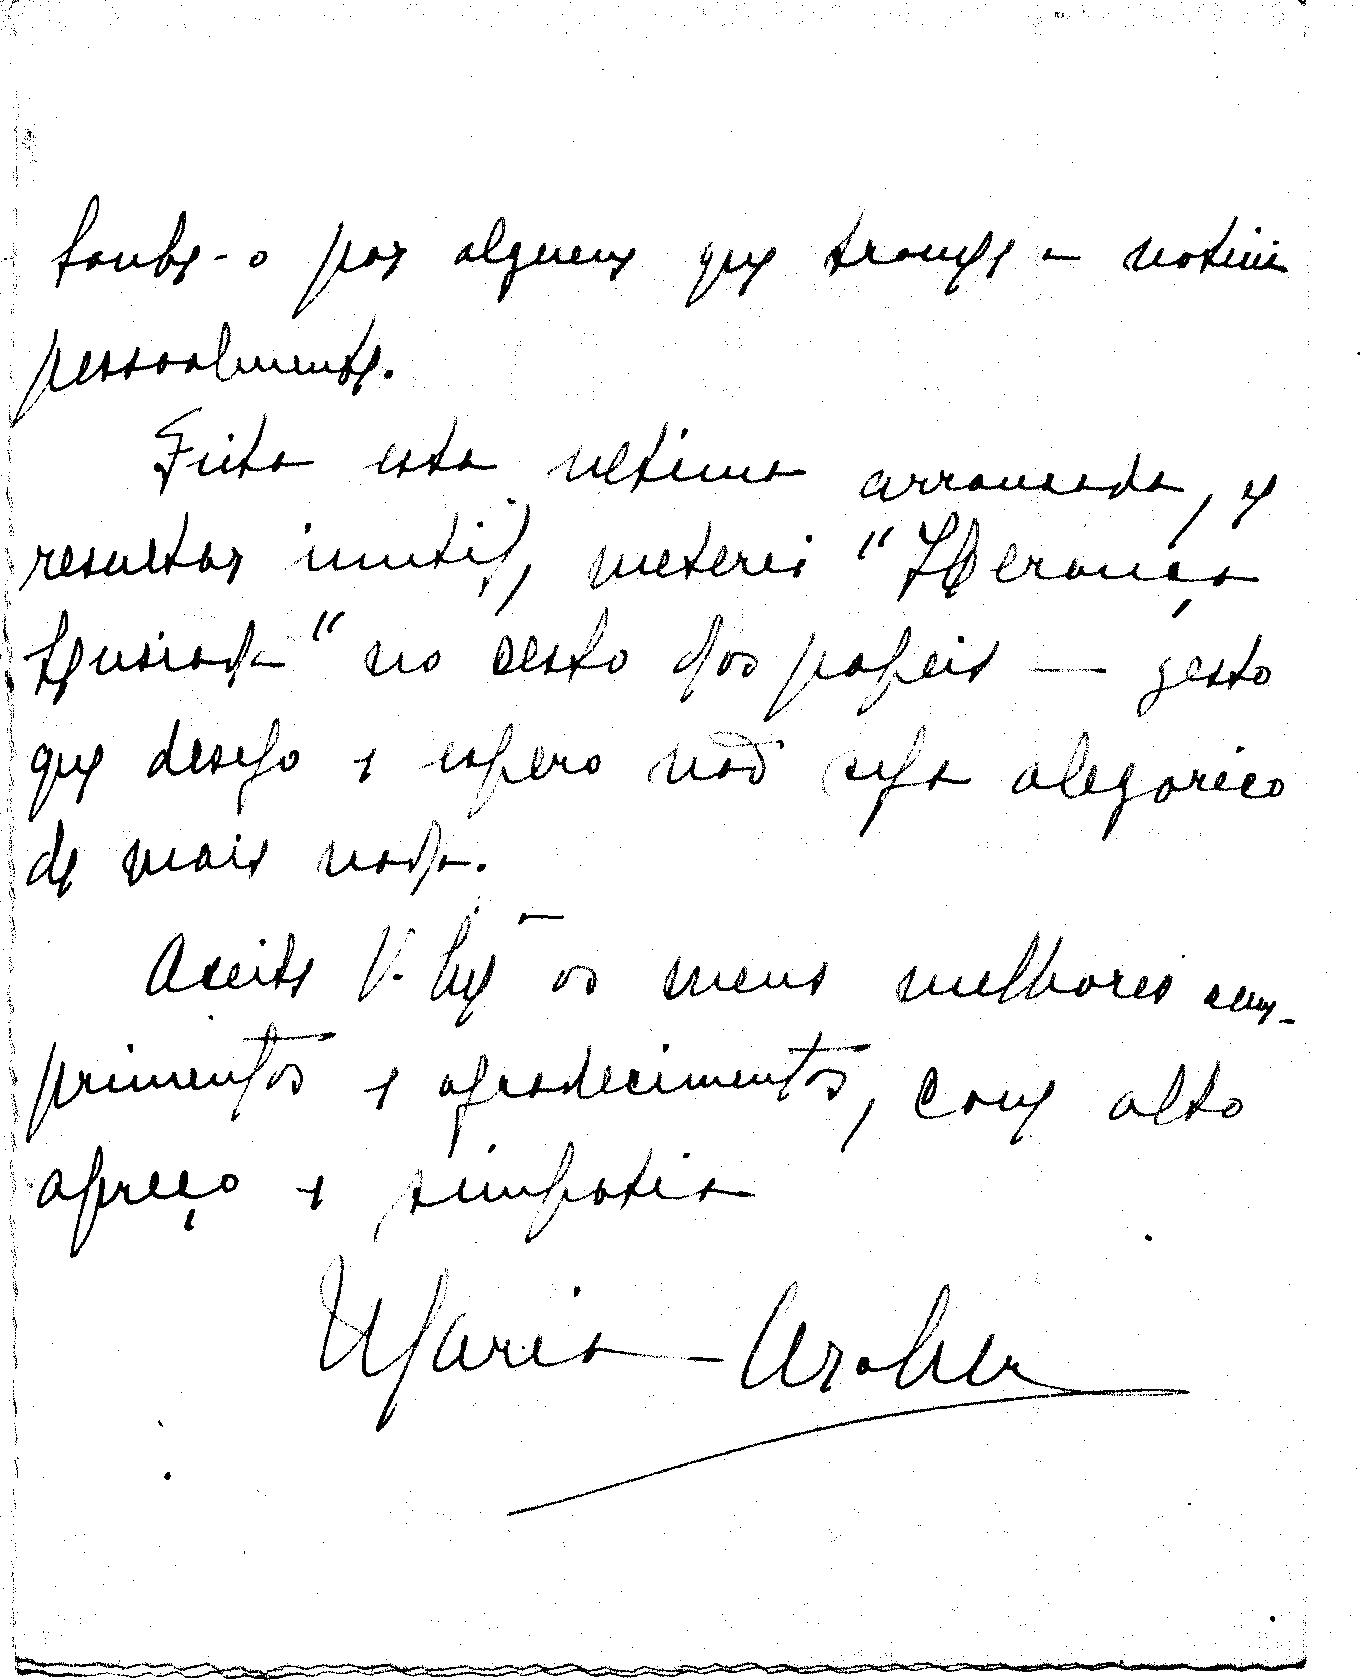 soube-o por alguem que trouxe a noticia
pessoalmente.
Feita esta ultima arrancada, e
resultar inutil, meterei "Herança
Lusiada" no cesto dos papeis — gesto
que desejo e espero não seja alegorico
de mais nada.
Aceite V. os meus melhores cum-
primentos e agradecimentos, com alto
apreço e simpatia
Maria Archer